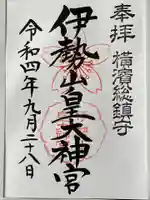 奉拝
横濱総鎮守
伊勢山皇大神宮
令和四年九月二十八日